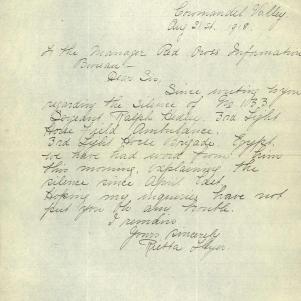 Coromandel Valley
Aug 21st. 1918.
To the Manager Red Cross Information
Bureau -
Dear Sir,
Since writing to you
regarding the silence of No 1033
Sergeant Ralph 3rd Light
Horse Field Ambulance.
3rd Light Horse Brigade. Egypt.
we have had word from him
this morning, explaining the
silence since April last.
Hoping my inquiries have not
put you to any trouble.
I remain
Yours sincerely